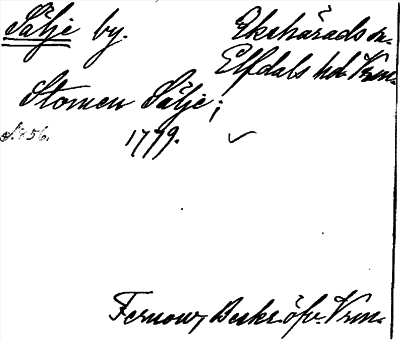 Sälje by.
Ekshärads sn.
Elfdals hd. Vrm.
Stomen Sälje;
s. 256.
1779.
Fernow, Beskr. öfv. Vrm.